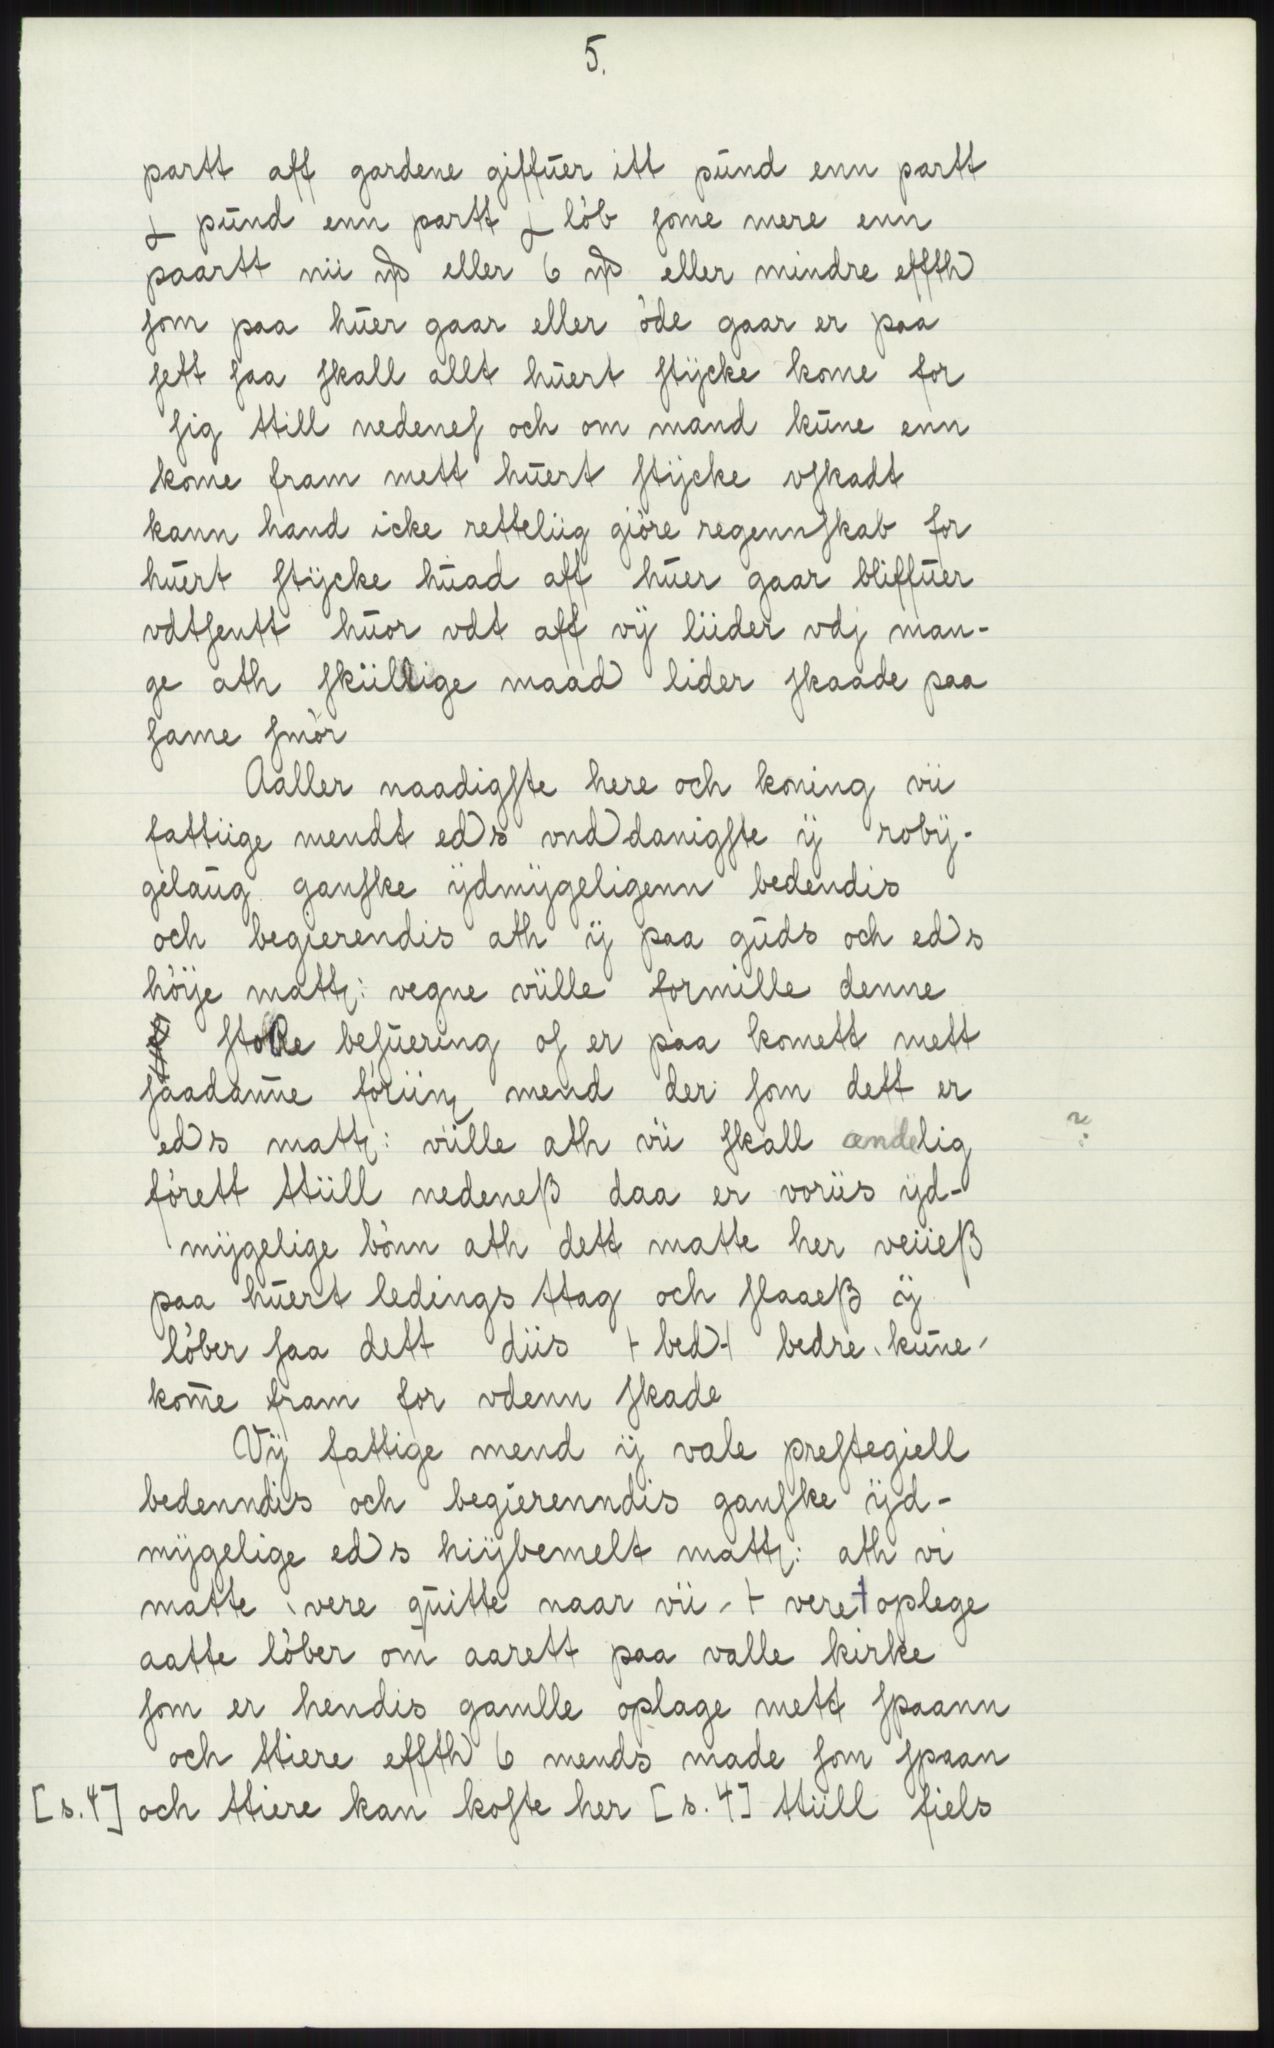 5.
partt aff gardene giffuer itt pund enn partt
pund enn partt löb some mere enn
paartt nii eller 6 eller mindre effth
som paa huer gaar eller öde gaar er paa
sett saa skall allt huert stÿcke kome for
sig ttill nedenes och om mand kune enn
kome fram mett huert stÿcke vskadt
kann hand icke retteliig giöre regennskab for
huert stÿcke huad aff huer gaar bliffuer
vdtsentt huor vdt aff vÿ liider vdj man-
ge ath skiillige maad lider skaade paa
same smör
Aaller naadigste here och koning vii
fattiige mendt eds vnddanigste ÿ robÿ-
gelaug ganske ÿdmÿgeligenn bedendis
och begierendis ath ÿ paa guds och eds
höÿe matt: vegne viille formille denne
store besuering os er paa komett mett
saadanne föriing mend der som dett er
eds matt: viille ath vii skall endelig ?
förett ttiill nedeneß daa er voriis ÿd-
mÿgelige bönn ath dett matte her veiieß
paa huert ledings ttag och slaaeß ÿ
löber saa dett diis + bed + bedre kune
kome fram for vdenn skade
Vÿ fattige mend ÿ vale prestegiell
bedenndis och begierenndis ganske ÿd-
mÿgelige eds hiÿbemelt matt: ath vi
matte vere quitte naar vii + vere + oplege
aatte löber om aarett paa valle kirke
som er hendis gamlle oplage mett spaann
och ttiere effth 6 mends made som spaan
[s. 4] och ttiere kan koste her [s. 4] ttiill fiels